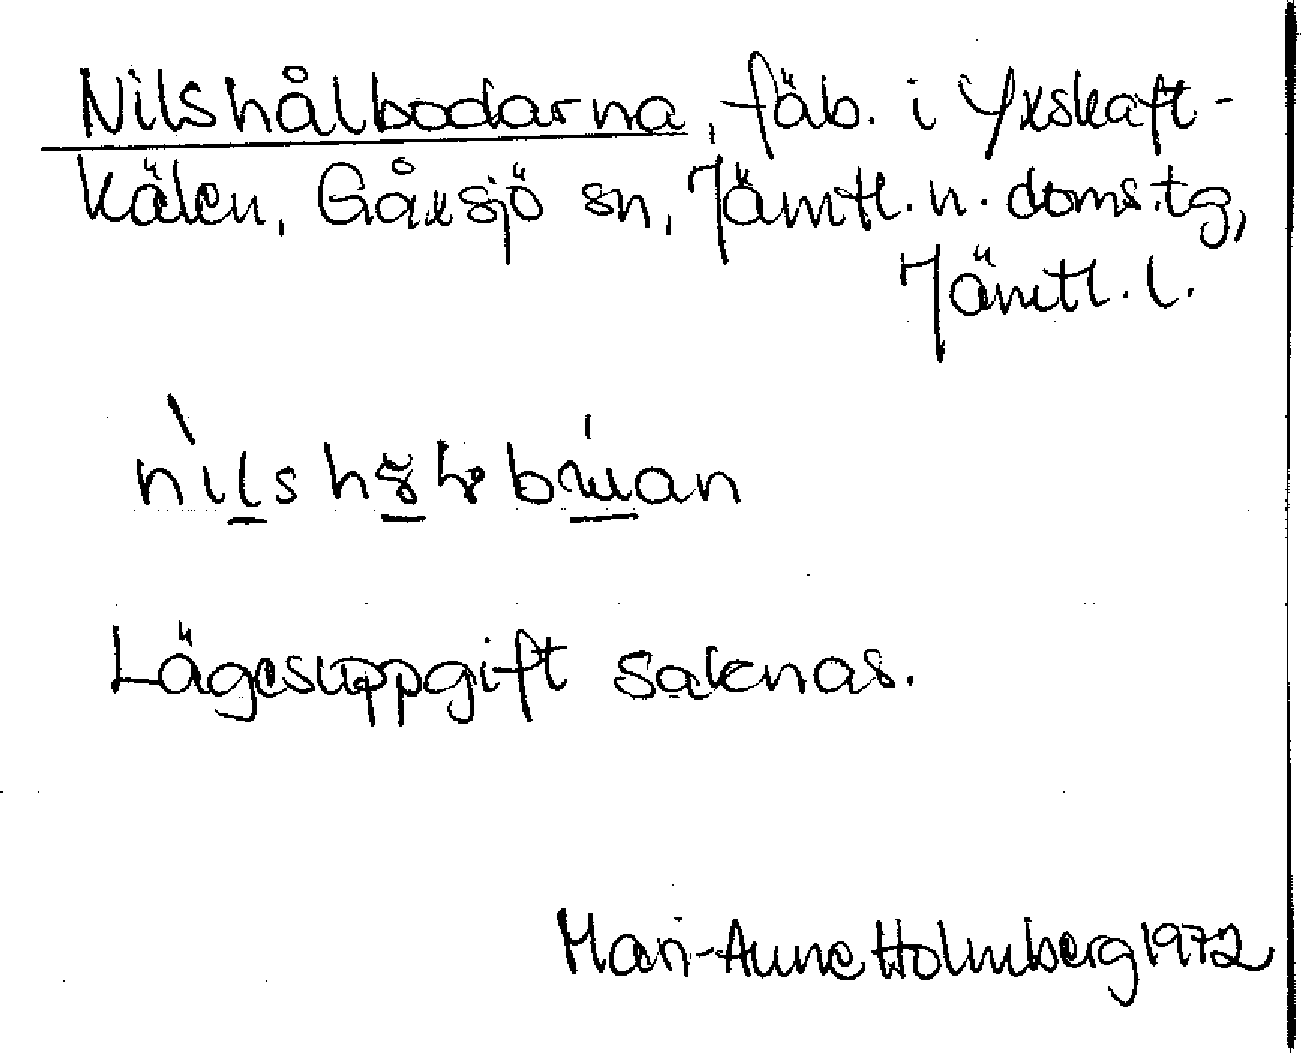 Nilshålbodarna, fäb. i Yxskaft-
kälen, Gåxsjö sn, Jämtl. n. doms.tg,
Jämtl. l.
Lägesuppgift saknas.
Mari-Anne Holmberg 1972